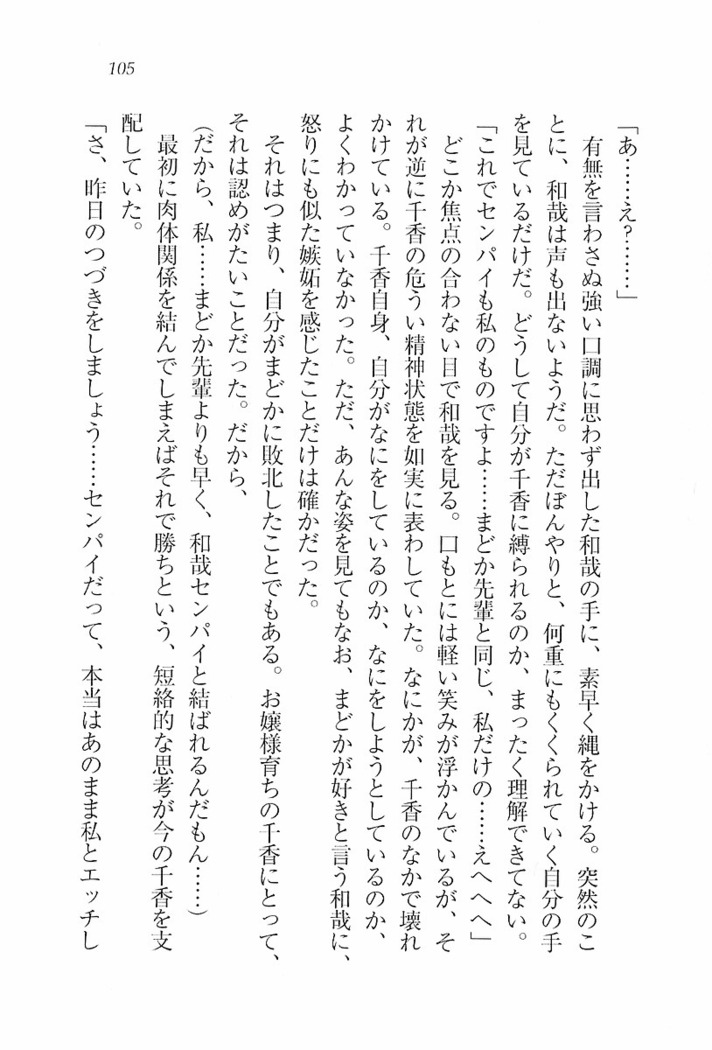 105
「あ……え？……」
有無を言わさぬ強い口調に思わず出した和哉の手に、素早く縄をかける。突然のこ
とに、和哉は声も出ないようだ。ただぼんやりと、何重にもくくられていく自分の手
を見ているだけだ。どうして自分が千香に縛られるのか、まったく理解できてない。
「これでセンパイも私のものですよ……まどか先輩と同じ、私だけの……えへへへ」
どこか焦点の合わない目で和哉を見る。口もとには軽い笑みが浮かんでいるが、そ
れが逆に千香の危うい精神状態を如実に表わしていた。なにかが、千香のなかで壊れ
かけている。千香自身、自分がなにをしているのか、なにをしようとしているのか、
よくわかっていなかった。ただ、あんな姿を見てもなお、まどかが好きと言う和哉に、
怒りにも似た嫉妬を感じたことだけは確かだった。
それはつまり、自分がまどかに敗北したことでもある。お嬢様育ちの千香にとって、
それは認めがたいことだった。だから、
（だから、私……まどか先輩よりも早く、和哉センパイと結ばれるんだもん……）
最初に肉体関係を結んでしまえばそれで勝ちという、短絡的な思考が今の千香を支
配していた。
「さ、昨日のつづきをしましょう……センパイだって、本当はあのまま私とエッチし